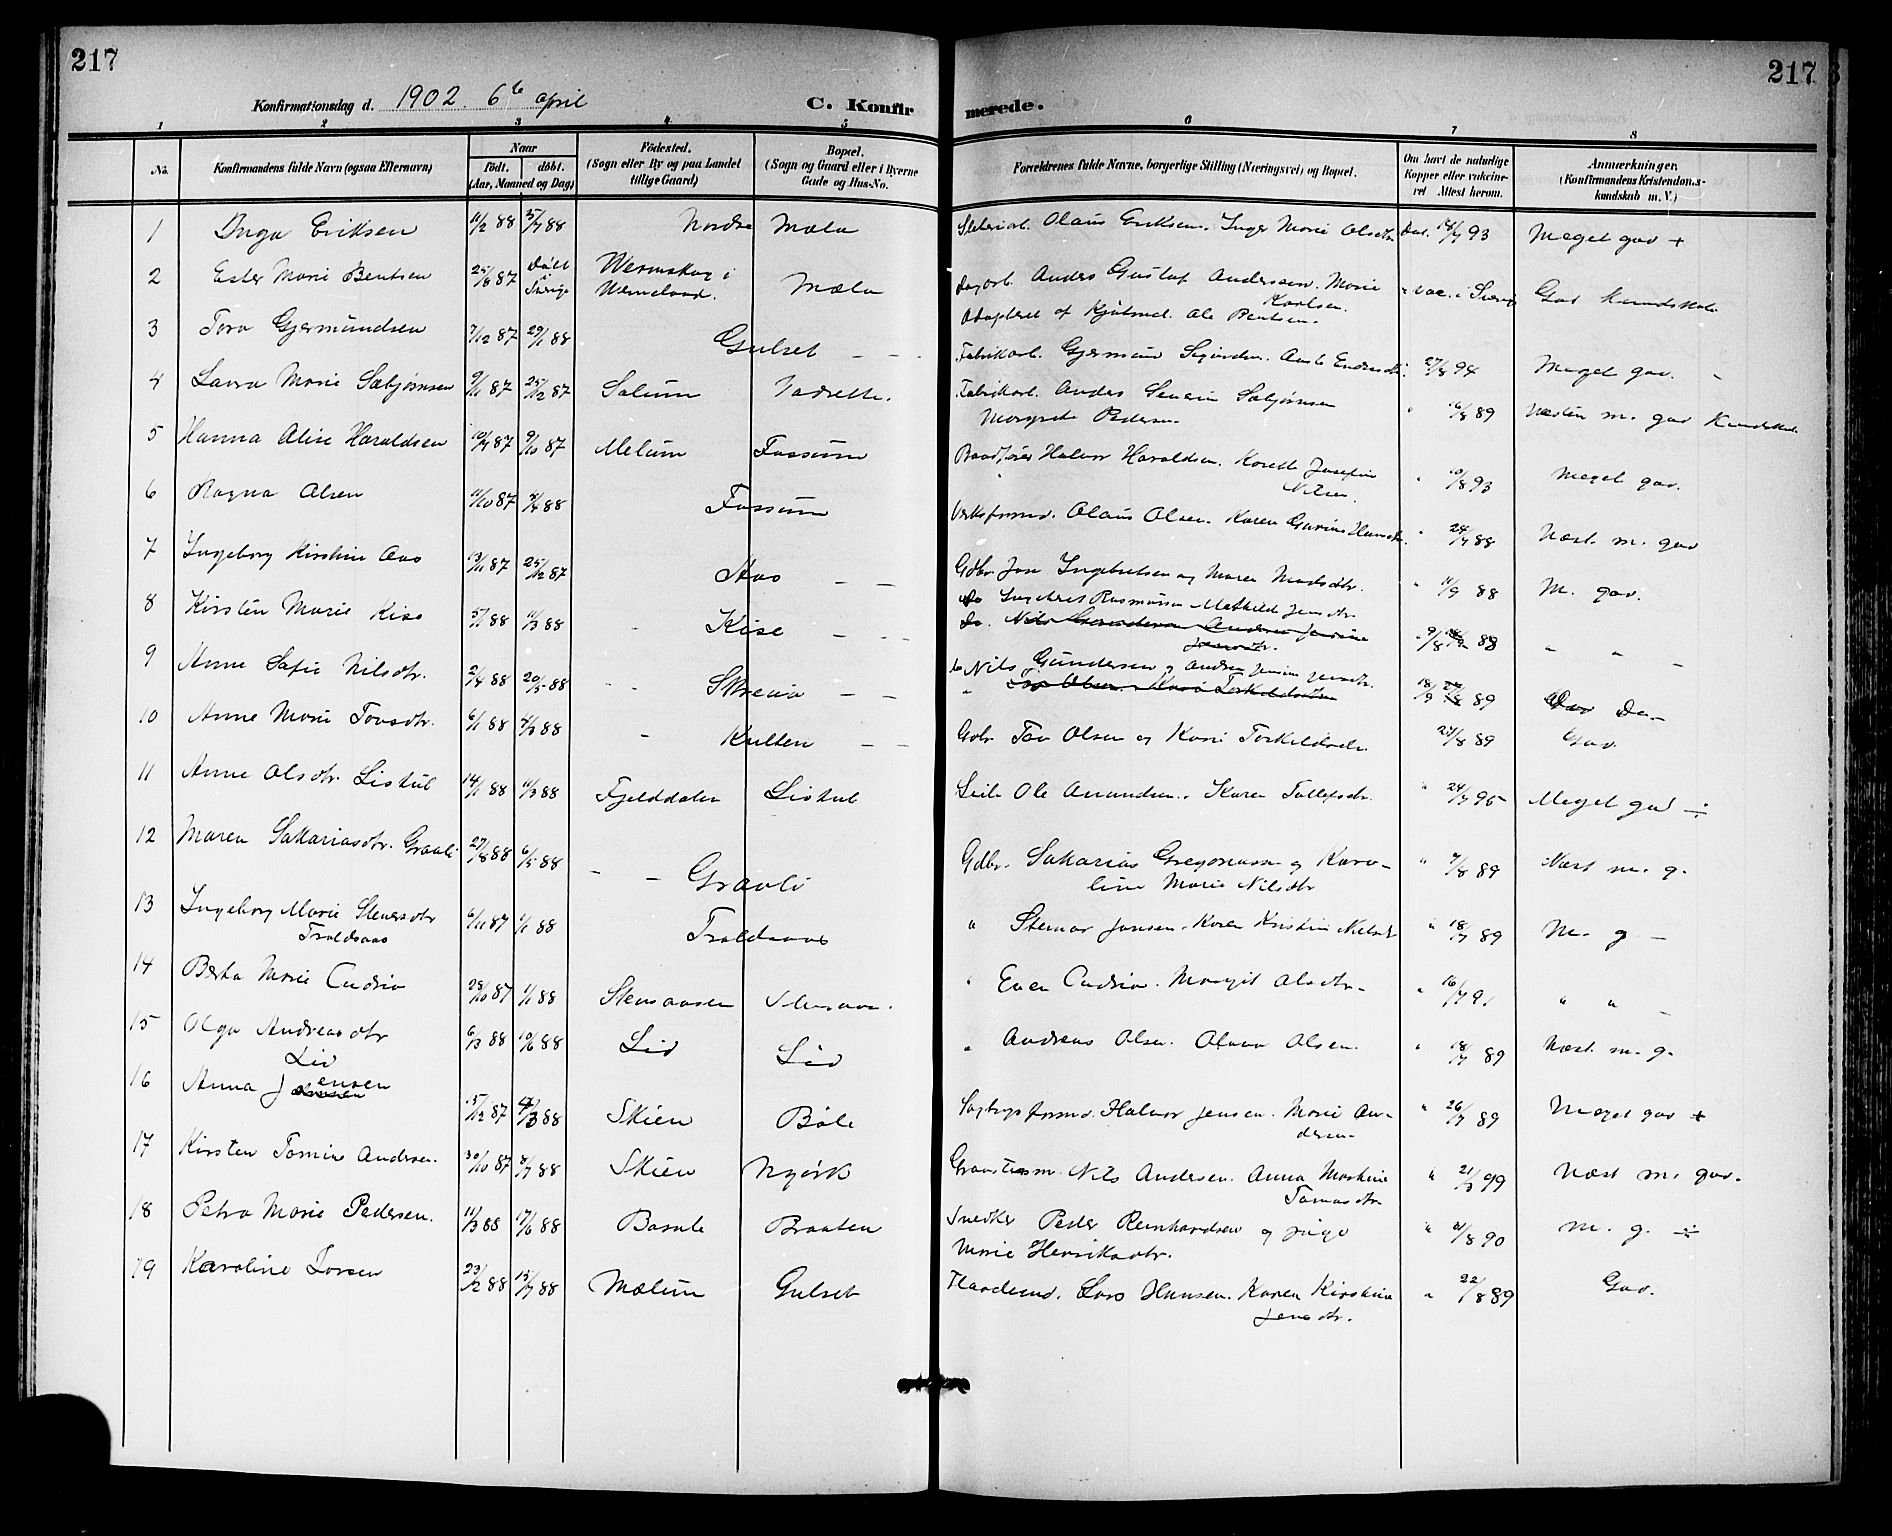 217
217
Konfirmationsdag d. 1902. 6te april
C. Konfirmerede.
1 2 3 4 5 6 7 8
No.
Konfirmandens fulde Navn (ogsaa Efternavn)
Naar
födt. döbt.
(Aar, Maaned og Dag)
Födested.
(Sogn eller By og paa Landet
tillige Gaard)
Bopæl.
(Sogn og Gaard eller i Byerne
Gade og Hus-No.
Forældrenes fulde Navne, borgerlige Stilling (Næringsvei) og Bopæl.
Om havt de naturlige
Kopper eller vakcine-
ret Attest herom.
Anmærkninger.
(Konfirmandens Kristendoms-
kundskab m. V.)
1 Inga Eriksen 11/2 88 5/7 88 Nordre Mæla Sliberiarb. Olaus Eriksen. Inger Marie Olsdtr. Vac. 14/7 93 Meget god +
2 Ester Marie Bentsen 25/8 87 Döbt Sverige Wermskog i Wermeland. Mæla Dagarb. Anders Gustaf Anderssen. Marie Karlsen. " vac. i Sverig God kundskab
Adopteret af Kjötmd. Ole Bentsen.
3 Tora Gjermundsen 7/12 87 29/1 88 Gulset - - Fabrikarb. Gjermund Sigurdsen. Aaste Endresdtr. 27/8 94 Meget god. -
4 Laura Marie Sæbjørnsen 9/11 87 25/12 87 Solum Vadrette. Fabrikarb. Anders Severin Sæbjørnsen " 16/8 89 Næsten m. god Kundskab
Margrete Pedersen.
5 Hanna Alise Haraldsen 10/7 87 9/10 87 Melum Fossum Baadfører Halvor Haraldsen. Korette Josefine Nilsen. " 19/8 93 Meget god.
6 Ragna Olsen 11/10 87 2/4 88 Fossum Verksformd. Olaus Olsen. Karen Gurine Hansdtr. " 24/7 88 Næst. m. god
7 Ingeborg Kirstine Aas 13/11 87 25/12 87 Aas - - Gdbr. Jon Ingebretsen og Maren Madsdtr. " 11/9 88 M. god.
8 Kirsten Marie Kise 5/1 88 11/3 88 - Kise - - Do Ingebret Rasmussen Mathilde Jensdtr.
Do. Nils Gundersen Andrea Jensine Jensdtr. 9/8 88 " " -
9 Anne Sofie Nilsdtr. 2/4 88 20/5 88 - - Skreia - - Do Nils Gundersen og Andrea Jensine Jensdtr. 18/9 89 Do -
" Tov Olsen. Kari Torkildsdtr.
10 Anne Marie Tovsdtr. 6/1 88 4/3 88 - Kulten - - Gdbr Tov Olsen og Kari Torkildsdtr. 27/8 89 God.
11 Anne Olsdtr. Listul 14/1 88 11/3 88 Fjelddalen Listul Leil. Ole Amundsen. Karen Tollefsdtr. " 24/7 95 Meget god ÷
12 Maren Sakariasdtr. Graali 6/5 88 - - Graali Gdbr. Sakarias Gregoriussen og Karo- " 7/8 89 Næst m. g.
line Marie Nilsdtr
13 Ingeborg Marie Stenersdtr 6/11 87 1/1 88 Troldsaas " Stener Jensen. Karen Kristine Nilsdtr " 18/7 89 M. g. -
Troldsaas
14 Berta Marie 28/10 87 1/1 88 Stensaasen Stensaas. " Even Margit Olsdtr. " 16/7 91 " " -
15 Olga Andreasdtr 6/3 88 10/6 88 Lid Lid " Andreas Olsen. Olava Olsen. " 18/7 89 Næst. m. g.
Lid
16 Anna Jensen 15/12 87 3 88 Skien Böle Sagbrugsformd. Halvor Jensen. Marie An- " 26/7 89 Meget god +
dersen
17 Kirsten Tomine Andersen. 30/10 87 8/7 88 Skien Nyörk Nils Andersen. Anna Martine " 21/3 99 Næst m. god.
Tomasdtr.
18 Petra Marie Pedersen. 11/3 88 17/6 88 Bamle Braaten Snedker Peder Reinhardsen og Inge " 21/8 90 m. g. ÷
Marie Henriksdtr.
19 Karoline Larsen 23/2 88 15/7 88 Mælum Gulset Lars Hansen. Karen Kirstine " 22/8 89 God.
Jensdtr.